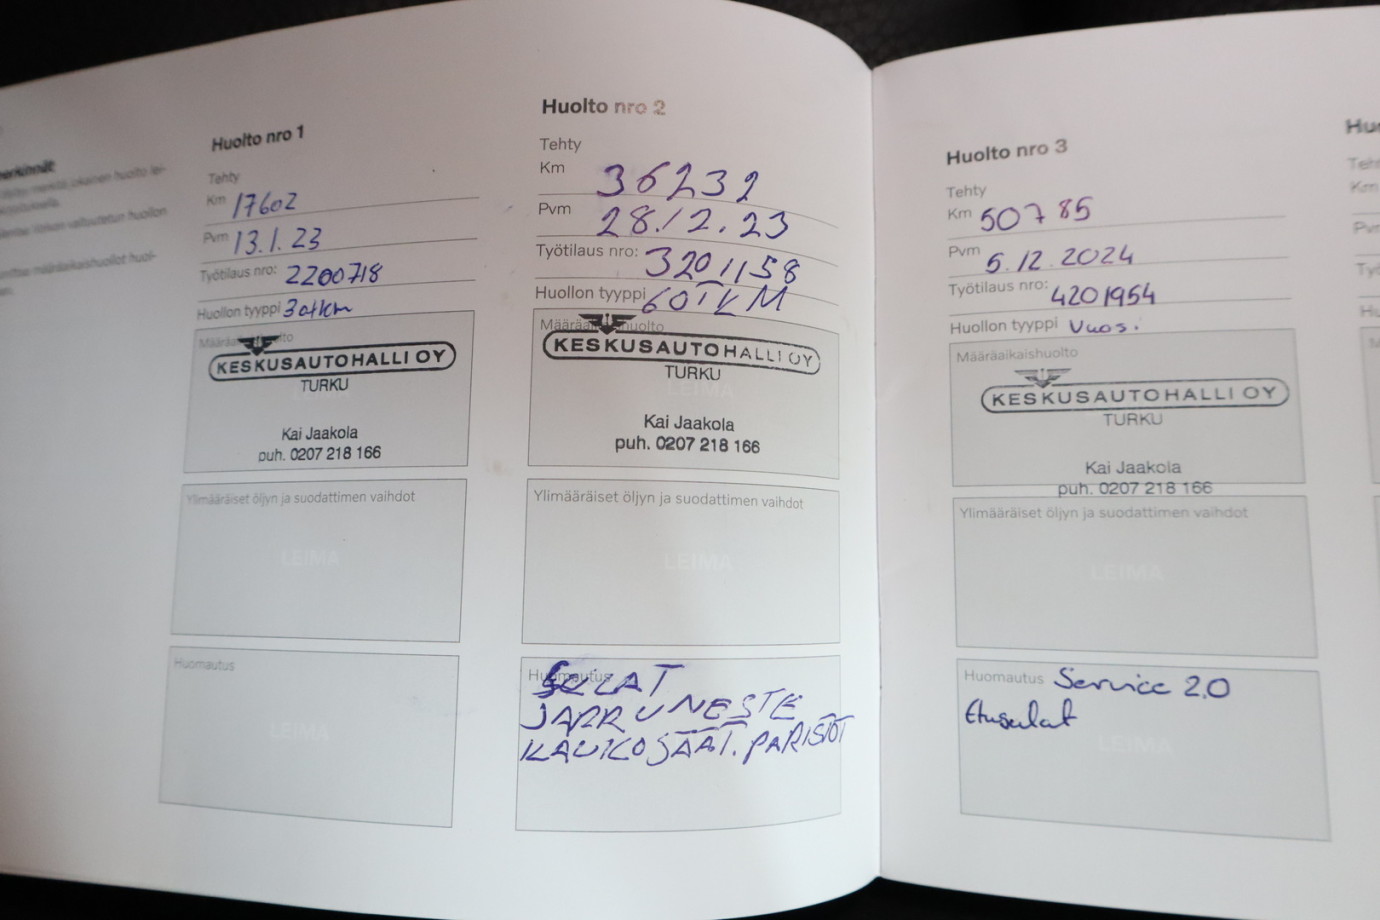 Huolto nro 1
Tehty
Km 17602
Pvm 13.1.23
Työtilaus nro: 2200718
Huollon tyyppi 30tkm
KESKUSAUTOHALLI OY
TURKU
Kai Jaakola
puh. 0207 218 166
Ylimääräiset öljyn ja suodattimen vaihdot
LEIMA
Huomautus
LEIMA
Huolto nro 2
Tehty
Km 36232
Pvm 28.12.23
Työtilaus nro: 3201158
Huollon tyyppi 60TKM
KESKUSAUTOHALLI OY
TURKU
LEIMA
Kai Jaakola
puh. 0207 218 166
Ylimääräiset öljyn ja suodattimen vaihdot
LEIMA
Huomautus
SULAT
JARRUNESTE
KAUKOSÄÄT. PARISTOT
Huolto nro 3
Tehty
Km 50785
Pvm 5.12.2024
Työtilaus nro: 4201954
Huollon tyyppi Vuos.
Määräaikaishuolto
KESKUSAUTOHALLI OY
TURKU
Kai Jaakola
puh. 0207 218 166
Ylimääräiset öljyn ja suodattimen vaihdot
LEIMA
Huomautus Service 2.0
Etusulat
LEIMA